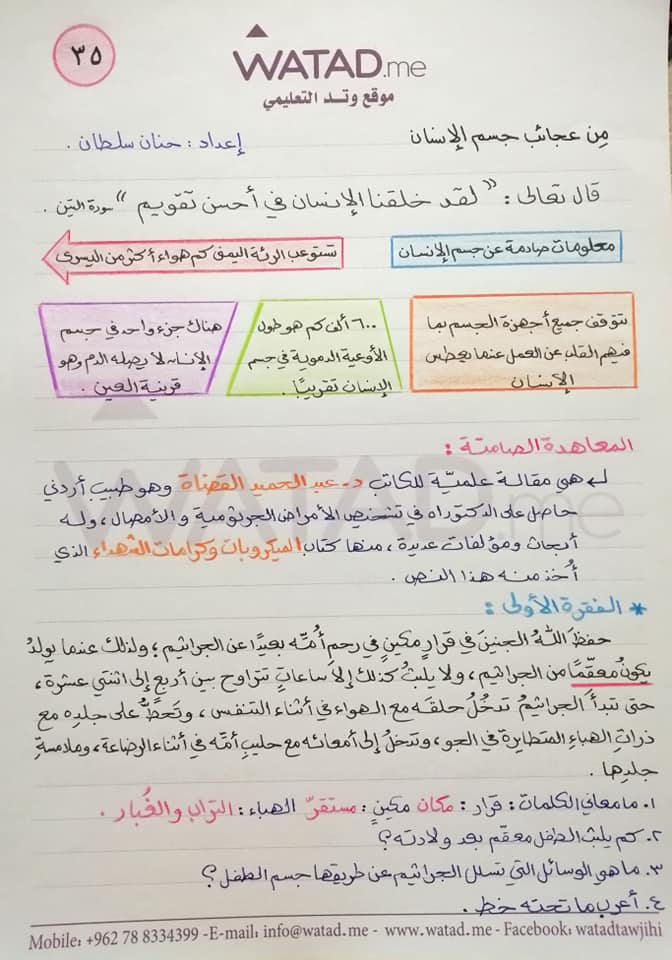 ٣٥
WATAD.me
موقع وتد التعليمي
من عجائب جسم الإنسان
إعداد : حنان سلطان .
قال تعالى : " لقد خلقنا الإنسان في أحسن تقويم " سورة التين .
معلومات صادمة عن جسم الإنسان
تستوعب الرئة اليمنى كم هواء أكثر من اليسرى
تتوقف جميع أجهزة الجسم بما
فيهم القلب عن العمل عندما يعطس
الإنسان
٦٠٠ ألف كم هو طول
الأوعية الدموية في جسم
الإنسان تقريبًا .
هناك جزء واحد في جسم
الإنسان لا يصله الدم وهو
قرنية العين .
المعاهدة الصامتة :
هي مقالة علميّة للكاتب د. عبد الحميد القضاة وهو طبيب أردني
حاصل على الدكتوراه في تشخيص الأمراض الجرثومية والأمصال ، وله
أبحاث ومؤلفات عديدة ، منها كتاب الميكروبات وكرامات الشهداء الذي
أُخذ منه هذا النص .
* الفقرة الأولى :
حفظَ اللهُ الجنينَ في قرارٍ مكينٍ في رحمِ أُمِّه بعيدًا عن الجراثيم ، ولذلك عندما يولدُ
يكونُ معقّمًا من الجراثيم ، ولا يلبثُ كذلك إلا ساعاتٍ تتراوح بين أربعٍ إلى اثنتي عشرة ،
حتى تبدأَ الجراثيمُ تدخُلُ حلقه مع الهواء في أثناء التنفس ، وتَحطُّ على جلدِه مع
ذراتِ الهباءِ المتطايرة في الجو ، وتدخلُ إلى أمعائه مع حليبِ أمّه في أثناء الرضاعة ، وملامسةِ
جلدِها .
١. ما معاني الكلمات : قرار : مكان مكينٍ : مستقرّ الهباء : التراب والغُبار .
٢. كم يلبث الطفل معقم بعد ولادته ؟
٣. ما هي الوسائل التي تسلل الجراثيم عن طريقها جسم الطفل ؟
٤. أعرب ما تحته خط .
Mobile: +962 78 8334399 -E-mail: info@watad.me - www.watad.me - Facebook: watadtawjihi